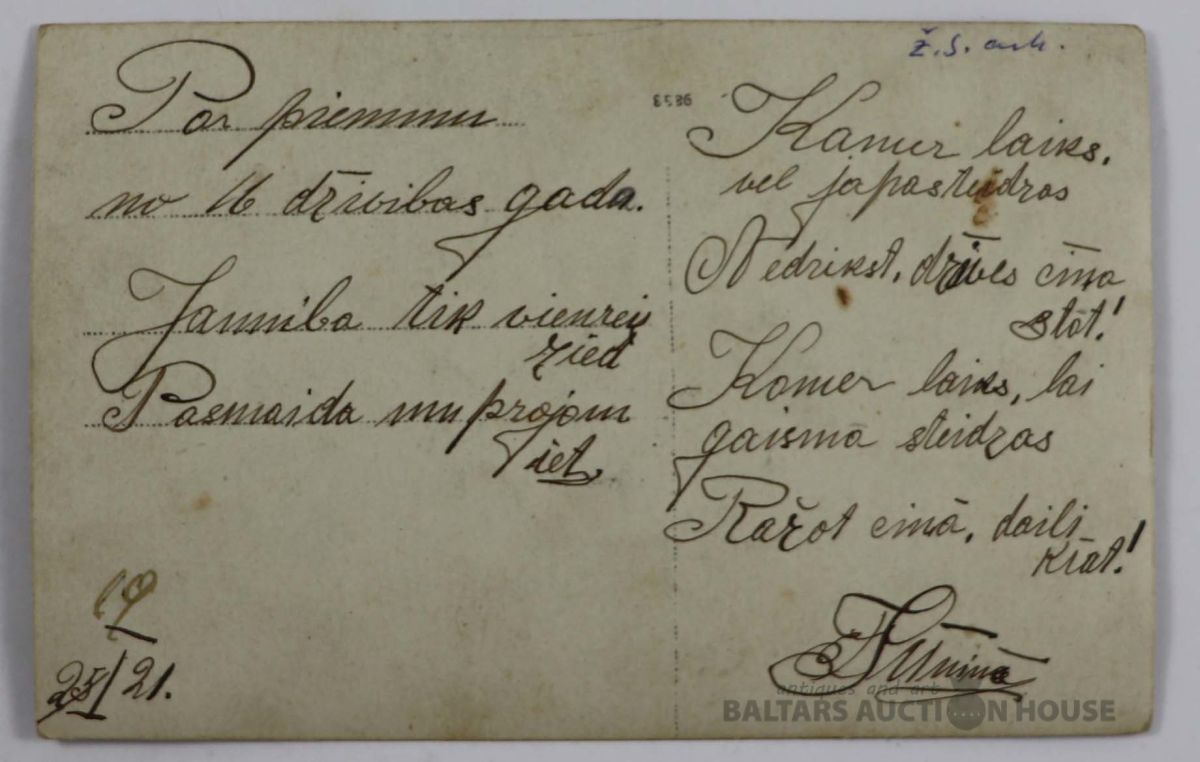 ž.s. ark.
Par piemiņu
no 16 dzīvibas gada.
Jaunība tik vienreiz
zied
Pasmaida un projom
iet.
19
25/I 21.
8586
Kamer laiks,
vel japasteidzas
Nedrikst, dzīves ciņa
stāt!
Kamer laiks, lai
gaisma steidzas
Ražot ciņā, daili
krāt!
antiques and art
BALTARS AUCTION HOUSE